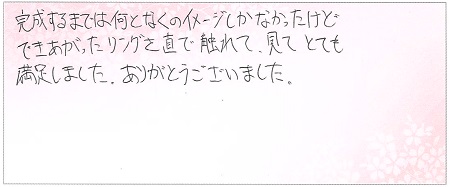 完成するまでは何となくのイメージしかなかったけど
できあがったリングを直で触れて、見て とても
満足しました。ありがとうございました。